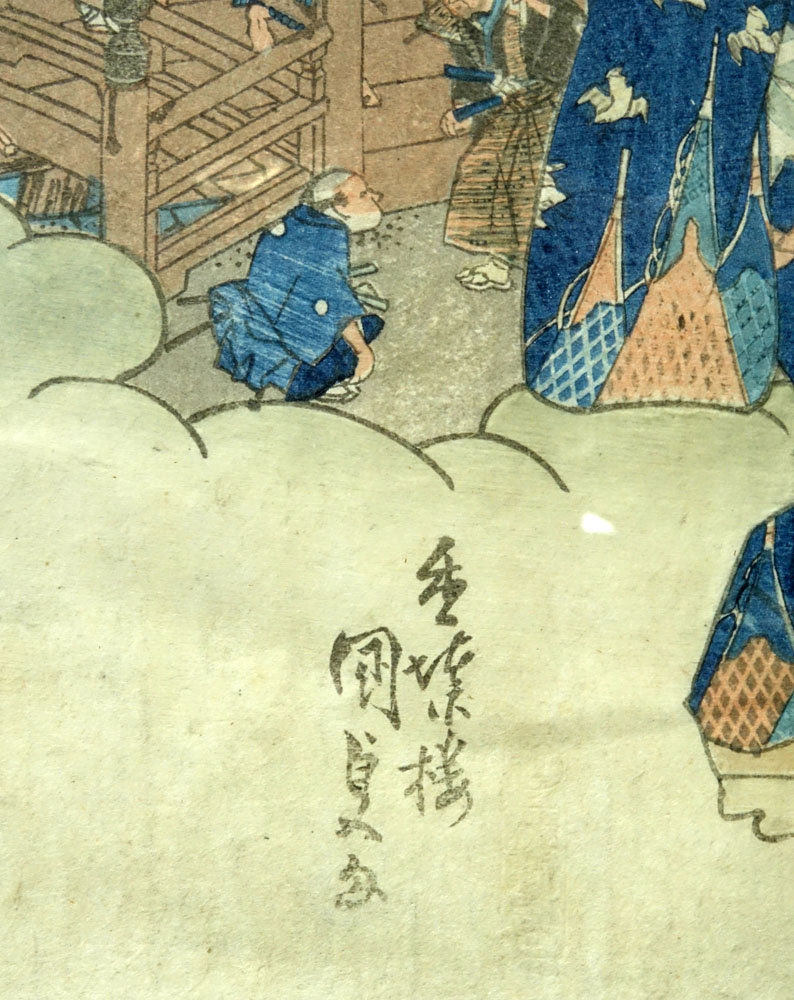 香蝶楼
國貞画